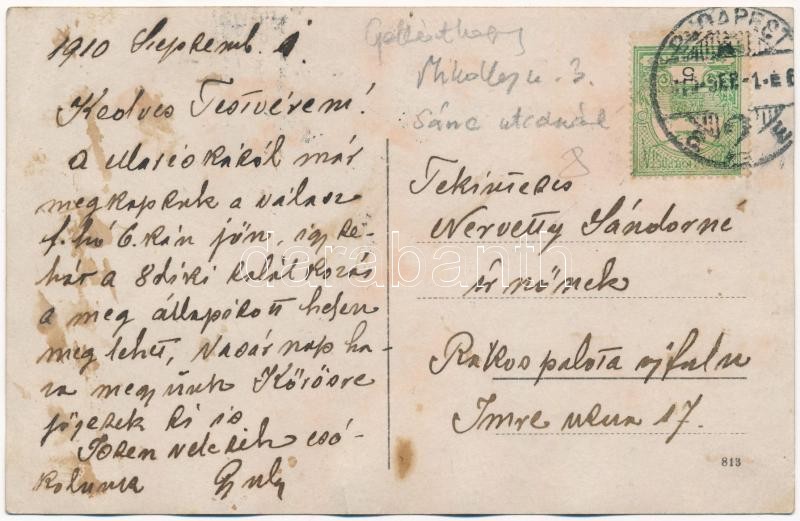 1910 Septemb. 1.
Kedves Testvéreim!
A Mariskától már
megkaptuk a válasz
f. hó 6.kán jön, igy te-
hát a 8diki találkozás
a meg állapitott helyen
meg lehet, Vasárnap ha-
za megyünk Körösre
jöjetek ki is
Isten veletek csó-
kolunk
Gellérthegy
Mikolley u. 3.
utcánál
Tekintetes
Nervetty Sándorné
úrnőnek
Rákospalota ujfalu
Imre utca 17.
BUDAPEST
813
darabanth